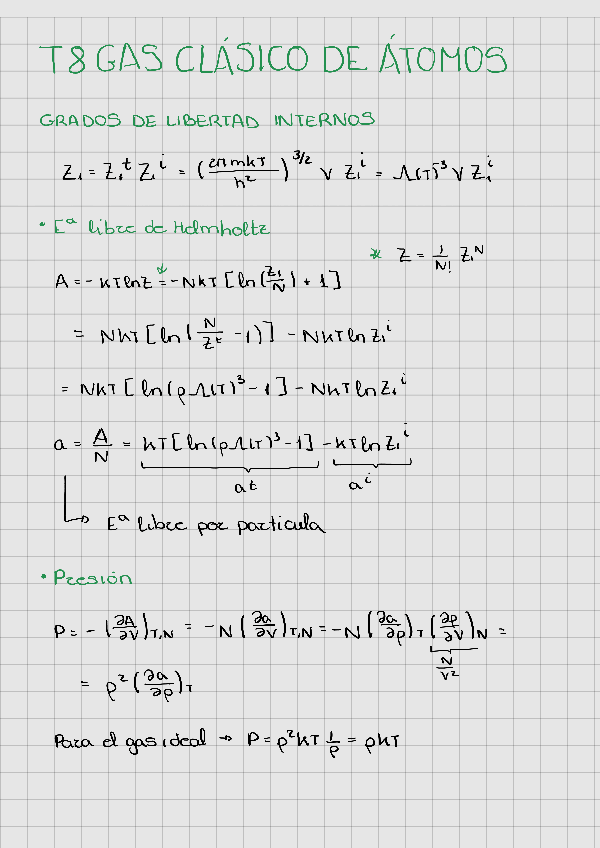 T8 GAS CLÁSICO DE ÁTOMOS
GRADOS DE LIBERTAD INTERNOS
Z₁ = Z₁ᵗ Z₁ⁱ = (2πmkT / h²)^3/2 V Z₁ⁱ = Λ(T)⁻³ V Z₁ⁱ
• Eª libre de Helmholtz
* Z = 1/N! Z₁ᴺ
A = - KT ln Z =* - NKT [ln(Z₁/N) + 1]
= NKT [ln(N/Zᵗ - 1)] - NKT ln Z₁ⁱ
= NKT [ln(ρΛ(T)³ - 1] - NKT ln Z₁ⁱ
a = A/N = KT [ln(ρΛ(T)³ - 1] - KT ln Z₁ⁱ
aᵗ aⁱ
↳ Eª libre por partícula
• Presión
P = - (∂A/∂V)T,N = - N (∂a/∂V)T,N = - N (∂a/∂ρ)T (∂ρ/∂V)N =
N/V²
= ρ² (∂a/∂ρ)T
Para el gas ideal → P = ρ²KT 1/ρ = ρKT